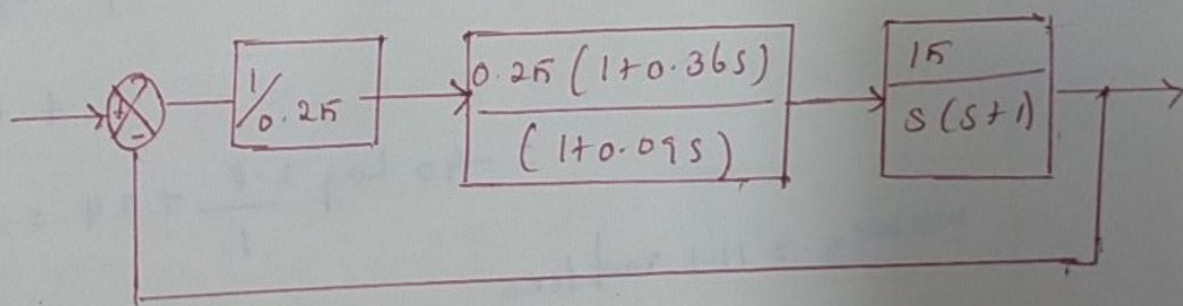 +
-
1/0.25
0.25 (1+0.36s)
(1+0.09s)
15
s(s+1)